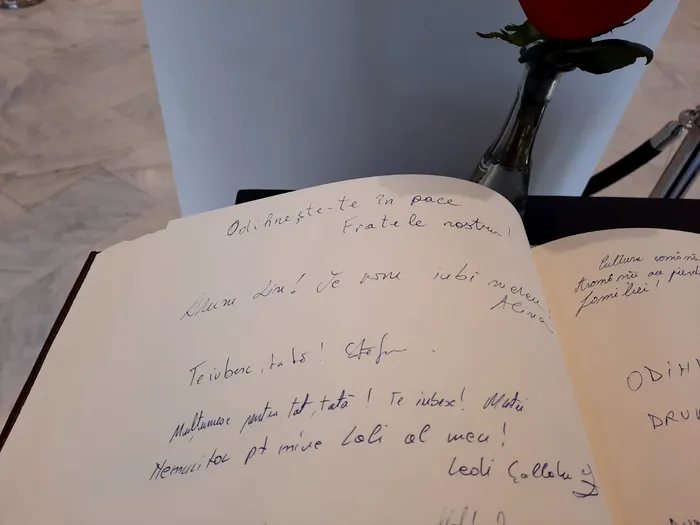 Odihnește-te în pace
Fratele nostru!
Drum Lin! Te vom iubi mereu!
Alina
Te iubesc, tată! Ștefan.
Mulțumesc pentru tot, tată! Te iubesc! Matei
Nemuritor pt mine al meu!
Cultura română
familiei!
ODIH
DRUM